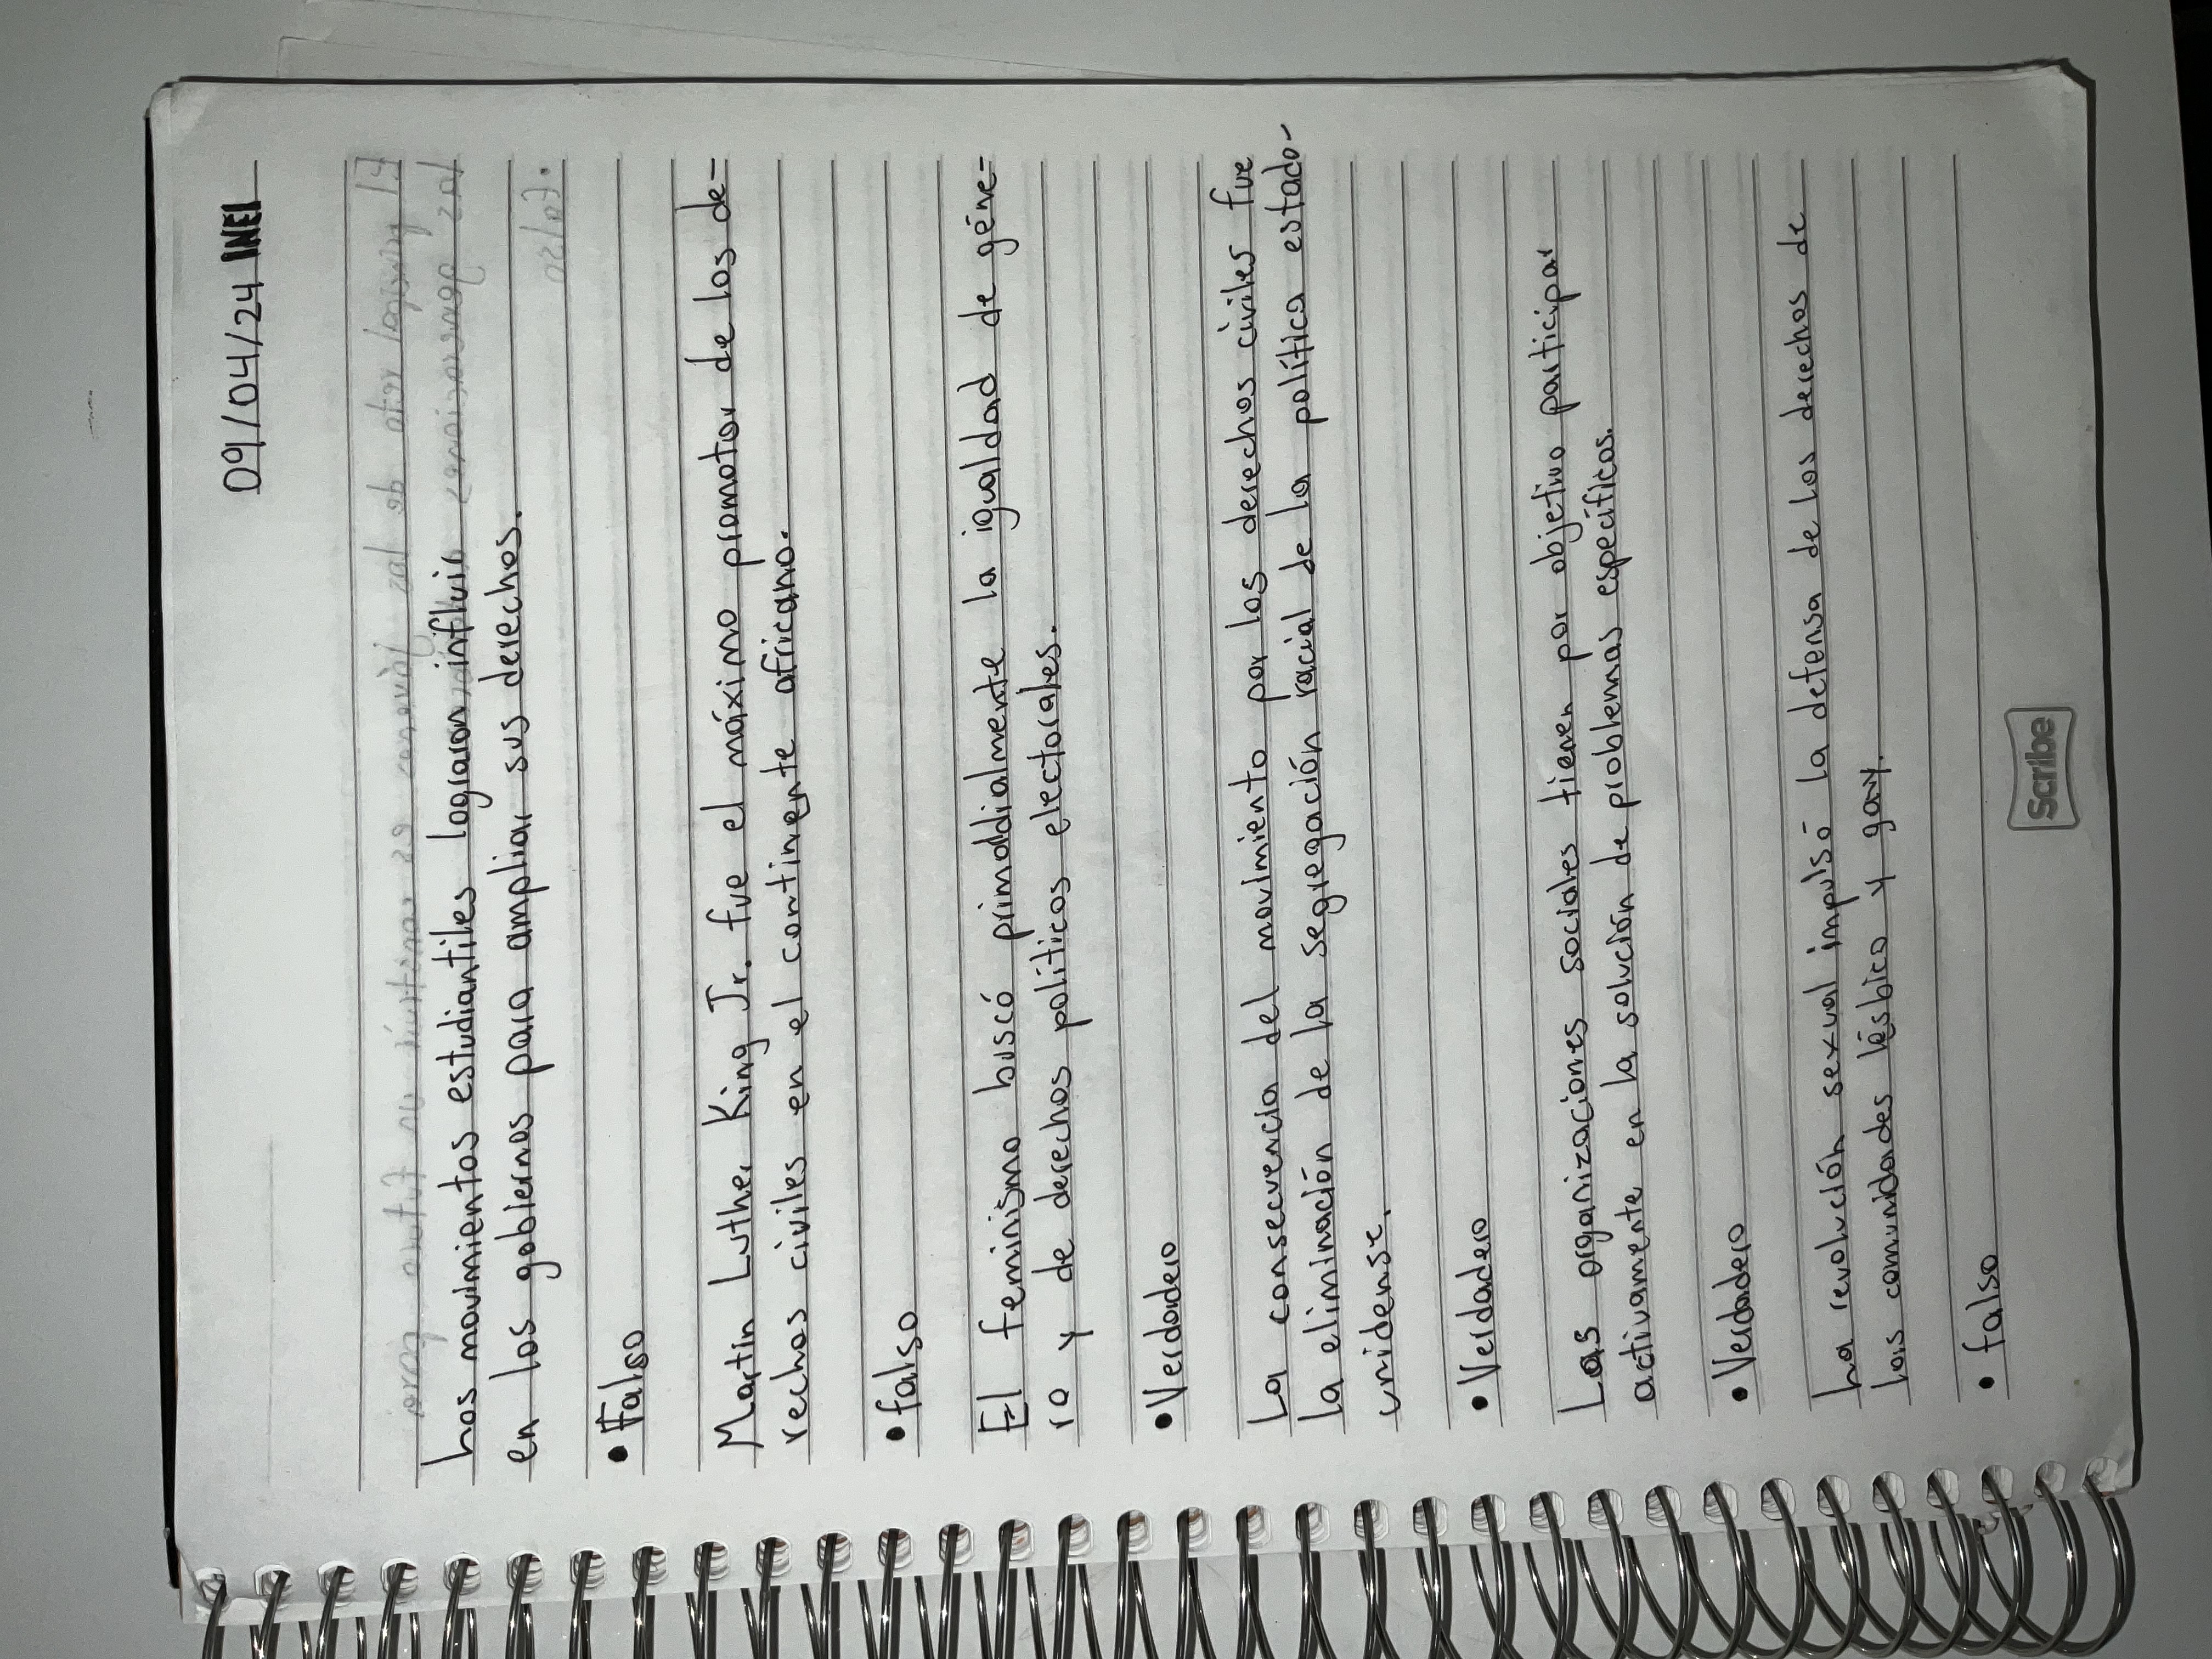 09/04/24 INEI
Los movimientos estudiantiles lograron influir
en los gobiernos para ampliar sus derechos.
• Falso
Martin Luther King Jr. fue el máximo promotor de los de-
rechos civiles en el continente africano.
• falso
El feminismo buscó primoddialmente la igualdad de géne-
ro y de derechos políticos electorales.
• Verdadero
La consecuencia del movimiento por los derechos civiles fue
la eliminación de la segregación racial de la política estado-
unidense.
• Verdadero
Las organizaciones sociales tienen por objetivo participar
activamente en la solución de problemas específicos.
• Verdadero
La revolución sexual impulsó la defensa de los derechos de
las comunidades lésbico y gay.
• falso
Scribe